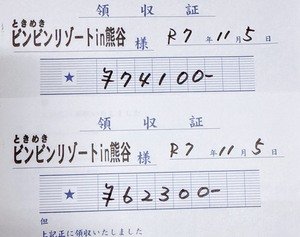 領収証
ときめき
ピンピンリゾートin熊谷 様 R7年11月5日
★ ¥74100-
領収証
ときめき
ピンピンリゾートin熊谷 様 R7年11月5日
★ ¥62300-
但
上記正に領収いたしました